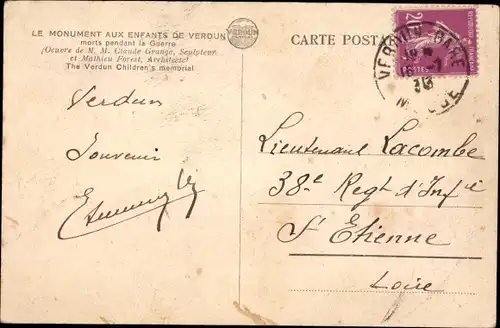 LE MONUMENT AUX ENFANTS DE VERDUN
morts pendant la Guerre
(Oeuvre de M. M. Claude Grange, Sculpteur
et Mathieu Forest, Architecte)
The Verdun Children's memorial
CARTE POSTALE
20
VERDUN GARE
MEUSE
Verdun
Souvenir
Lieutenant Lacombe
38e Regt d'Infie
St Etienne
Loire